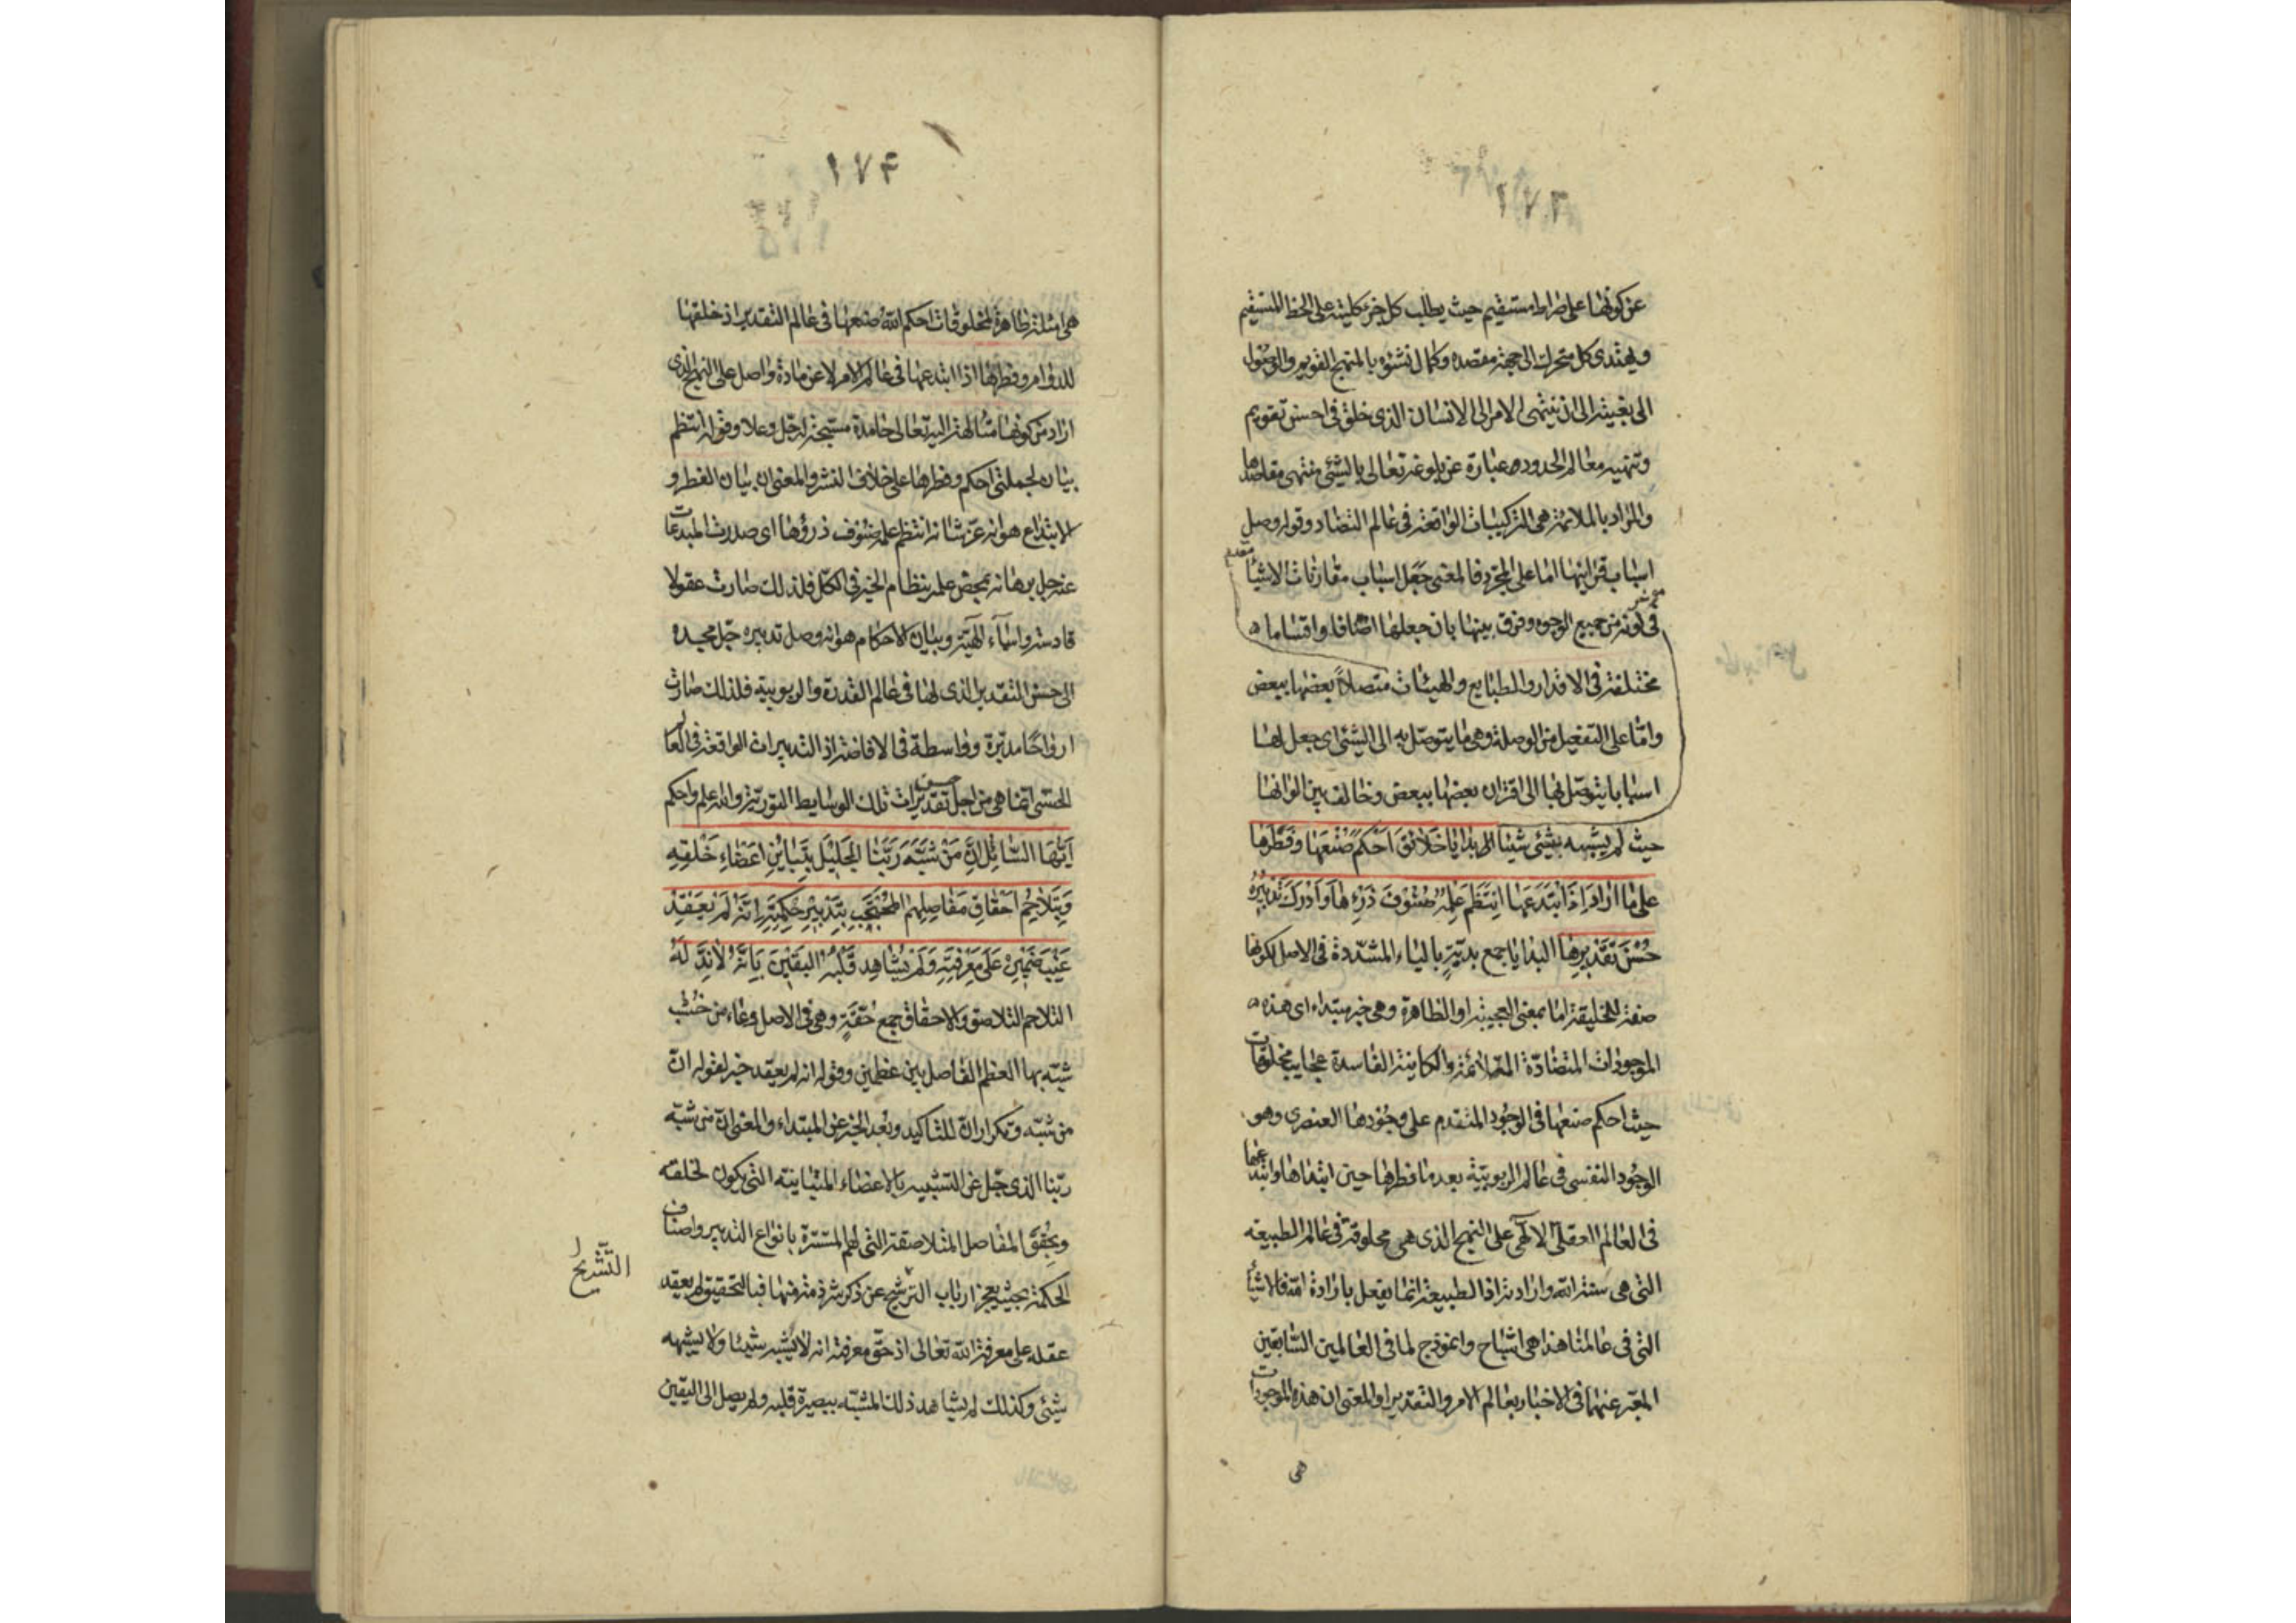 عن كونها على صراط مستقيم حيث يطلب كل جزء كليته على الخط المستقيم
ويهتدى كل متحرك الى جهة مقصده وكمال نشوه بالمنهج القويم والوصول
الى بغيته الى ان ينتهى الامر الى الانسان الذى خلق فى احسن تقويم
وتنهيه معالم الحدود عبارة عن بلوغه تعالى بالشئ منتهى مقاصدها
والمراد بالملائمة هى التركيبات الواقعة فى عالم التضاد وقوله وصل
اسباب قرائنها اما على المجرد فالمعنى جعل اسباب مقارنات الاشيأ
من جميع الوجوه وفرق بينها بان جعلها اصنافا واقساما
مختلفة فى الاقدار والطبايع والهيئات متصلاً بعضها ببعض
وامّا على التفعيل من الوصلة وهى ما يتوصّل به الى الشئ اى جعل لها
اسبابا يتوصّل بها الى اقتران بعضها ببعض وخالف بين الوانها
حيث لم يشبه بشئ شيئا بدايا خلائق احكم صنعها وفطرها
على ما اراد اذ ابتدعها انتظم علمه صنوف ذرءها وادرك تدبيره
حسن تقديرها البدايا جمع بديّة بالياء المشدّدة فى الاصل لكونها
صفة للخليقة اما بمعنى العجيبة او الظاهرة وهى خبر مبتداء اى هذه
الموجودات المتضادّة المتلائمة والكاينة الفاسدة عجايب مخلوقات
حيث احكم صنعها فى الوجود المتقدم على وجودها العنصرى وهو
الوجود النفسى فى عالم الربوبيّة بعد ما فطرها حين ابتداها وابتدعها
فى العالم العقلى الالهى على النهج الذى هى مخلوقة فى عالم الطبيعة
التى هى سنة الله وارادته اذ الطبيعة انما يفعل بارادة الله فالاشيأ
التى فى عالمنا هذا هى اشباح وانموذج لما فى العالمين السّابقين
المعبّر عنهما فى الاخبار بعالم الامر والتقدير او المعنى ان هذه الموجودات
هى
١٧۴
هى امثلة ظاهرة لمخلوقات احكم الله صنعها فى عالم التقدير اذ خلقها
للدوام وفطرها اذا ابتدعها فى عالم الامر لا عن مادة واصل على النهج الذى
اراد من كونها متألهة اليه تعالى حامدة مسبّحة له جلّ وعلا وقوله انتظم
بيان لجملتى احكم وفطرها على خلاف النشر والمعنى ان بيان الفطر و
الابتداع هو انه عزّ شانه انتظم علمه صنوف ذرؤها اى صدرت المبدعات
عنه جل برهانه بمحض علمه بنظام الخير فى الكلّ فلذلك صارت عقولا
قادسة واسمآء الٓهيّة وبيان الاحكام هو انه وصل تدبيره جلّ مجده
الى حسن التقدير الذى لها فى عالم القدرة والربوبية فلذلك صارت
ارواحًا مدبّرة وواسطة فى الافاضة اذ التدبيرات الواقعة فى العالم
الحسّى انما هى من اجل حسن تقديرات تلك الوسايط النوريّة والله اعلم واحكم
ايّها السّائل انّ من شبّه ربّنا الجليل بتباين اعضاء خلقه
وبتلاحم احقاق مفاصلهم المحتجب بتدبير حكمته انّه لم يعقد
غيب ضميره على معرفته ولم يشاهد قلبه اليقين بانّه لا ندّ له
التلاحم التلاصق والاحقاق جمع حقّة وهى فى الاصل وعاء من خشب
شبّه بها العظم الفاصل بين عظمين وقوله انه لم يعقد خبر لقوله انّ
من شبّه وتكرار انّ للتاكيد وبُعد الخبر عن المبتداء والمعنى انّ من شبّه
ربّنا الذى جلّ عن التشبيه بالاعضاء المتباينة التى يكون لخلقه
وبحقق المفاصل المتلاصقة التى لهم المستترة بانواع التدبير واصناف
الحكمة بحيث يعجز ارباب الترشيح عن ذكر شرذمة منها فبالتحقيق لم يعقد
التّشريح
عقله على معرفة الله تعالى اذ حقّ معرفته انه لا يشبه شيئا ولا يشبهه
شئ وكذلك لم يشاهد ذلك المشبّه ببصيرة قلبه ولم يصل الى اليقين